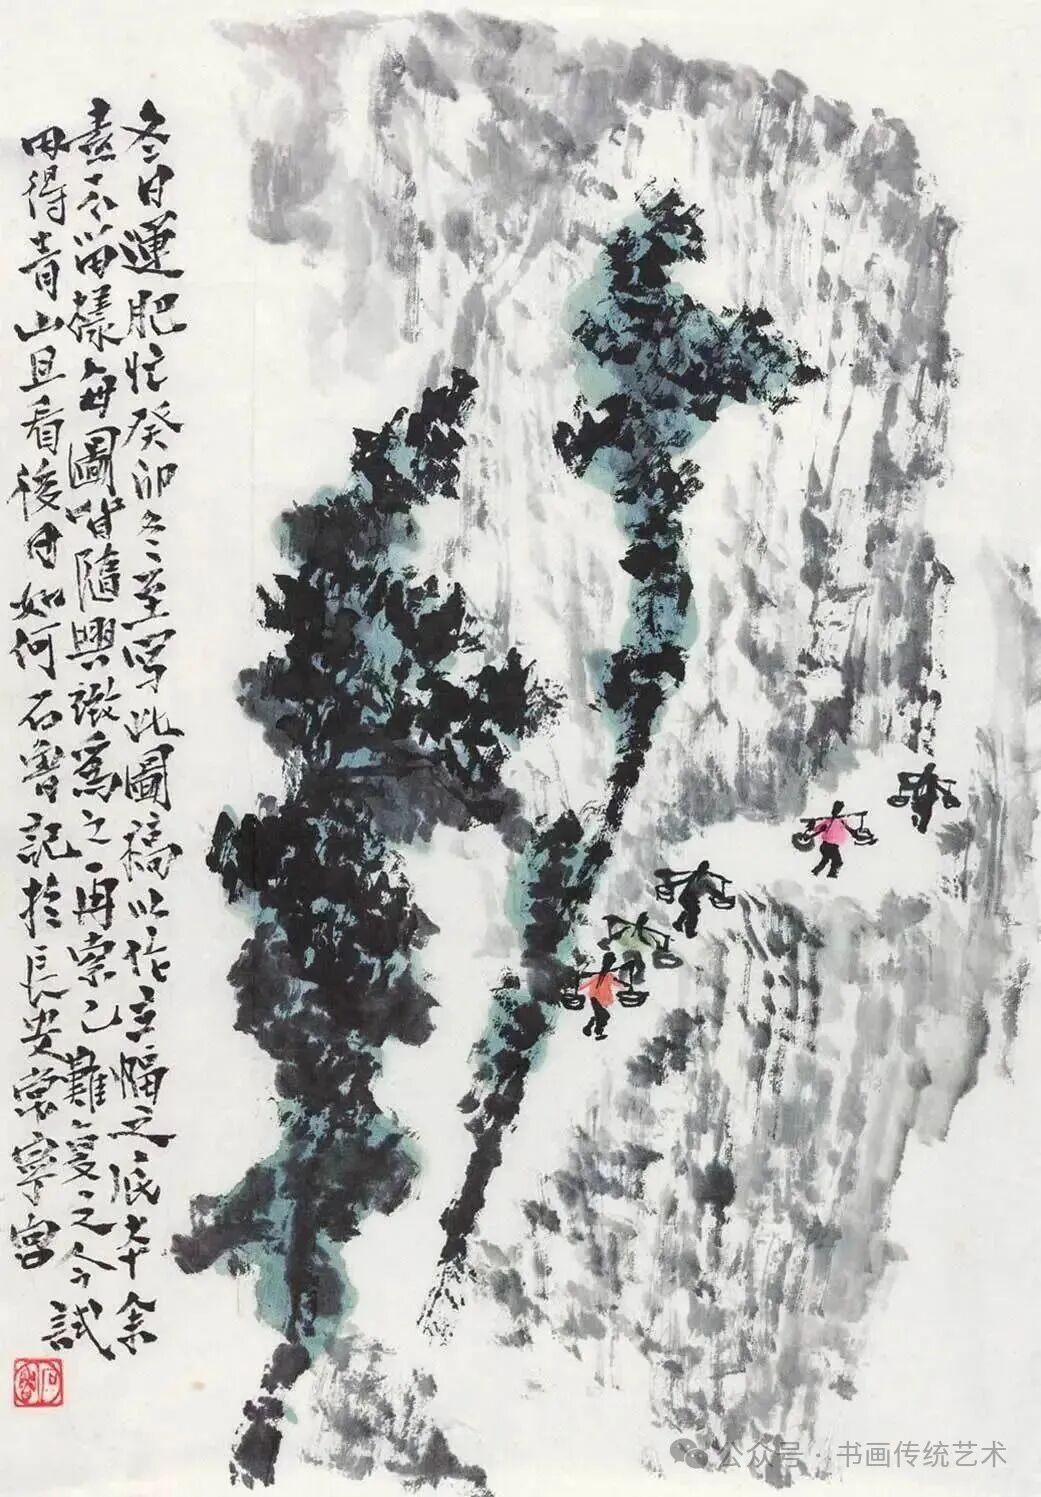 冬日運肥忙癸卯冬至写此圖稿以作立幅之底本余
素不留樣每圖皆隨興澂為之再索已難復之今試
用得青山且看後日如何石魯記於長安常寧宮
公众号·书画传统艺术